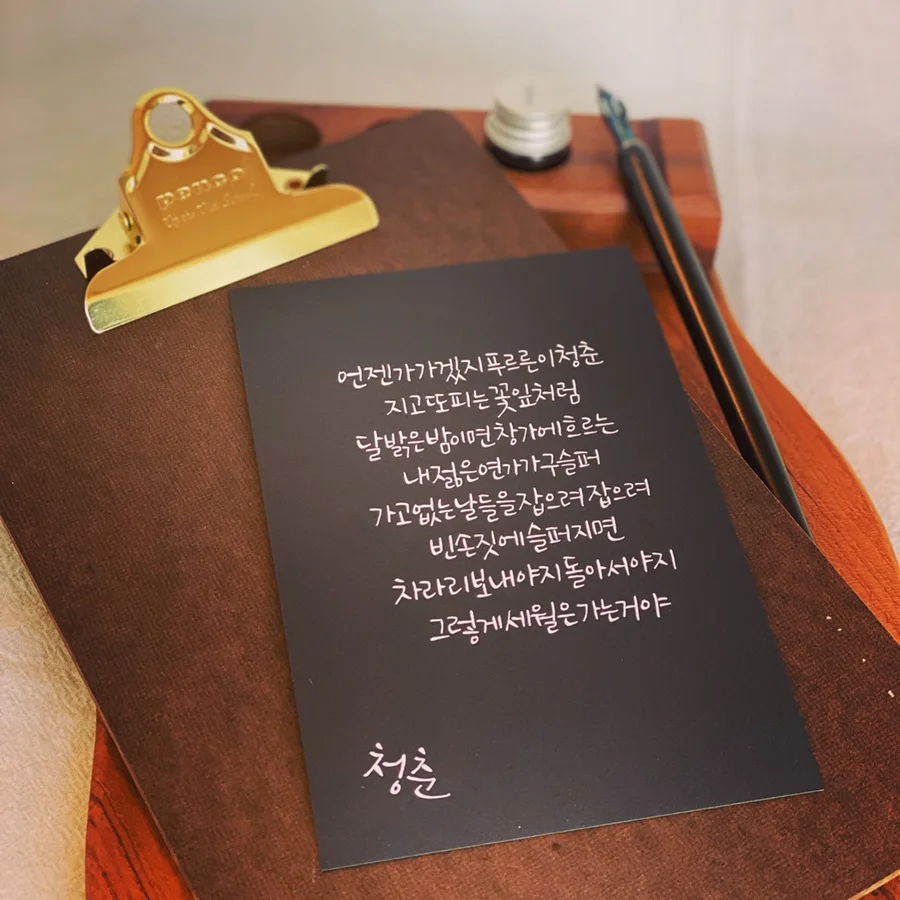 penco
언젠가 가겠지 푸르른 이 청춘
지고 또 피는 꽃잎처럼
달 밝은 밤이면 창가에 흐르는
내 젊은 연가가 구슬퍼
가고 없는 날들을 잡으려 잡으려
빈 손짓에 슬퍼지면
차라리 보내야지 돌아서야지
그렇게 세월은 가는 거야
청춘